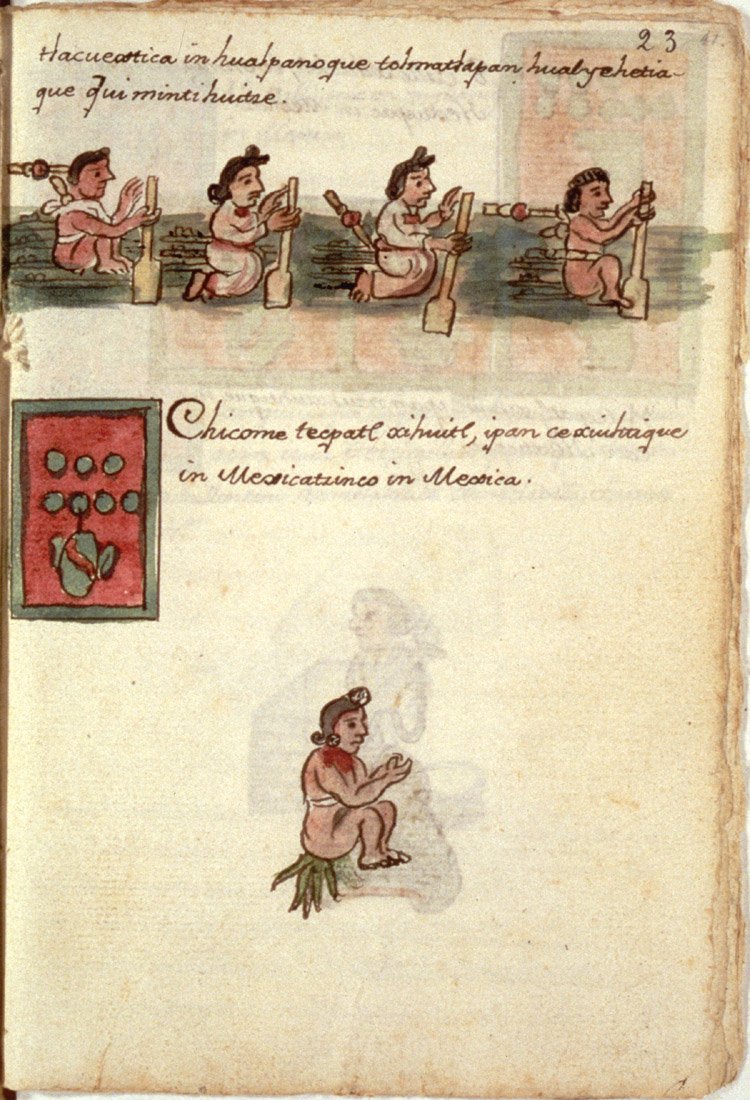 23
tlacuextica in hualpanoque tolmatlapan, hualyehetia-
que quimintihuitze.
Chicome tecpatl xihuitl, ipan cexiuhtique
in Mexicatzinco in Mexica.